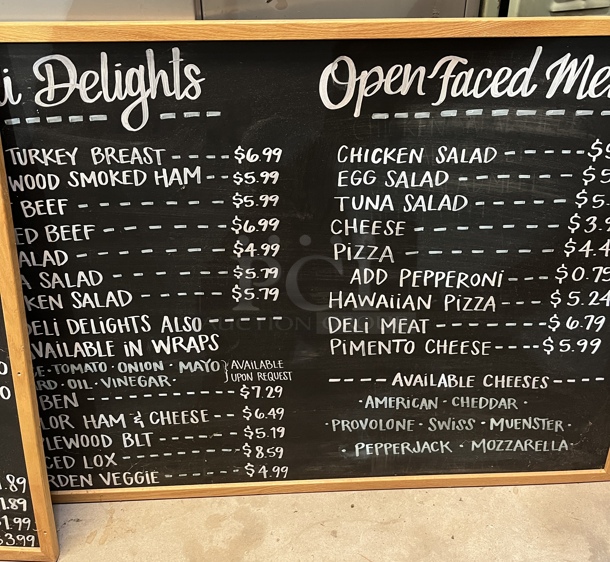 i Delights
TURKEY BREAST ---- $6.99
WOOD SMOKED HAM -- $5.99
BEEF -------- $5.99
ED BEEF ------ $6.99
ALAD ------- $4.99
A SALAD ------ $5.79
KEN SALAD ---- $5.79
DELI DELIGHTS ALSO -----
AVAILABLE IN WRAPS
E·TOMATO·ONION·MAYO } AVAILABLE
RD·OIL·VINEGAR· UPON REQUEST
BEN --------- $7.29
LOR HAM & CHEESE -- $6.49
LEWOOD BLT ----- $5.19
CED LOX ------- $8.59
RDEN VEGGIE ---- $4.99
Open Faced Me
CHICKEN SALAD ----- $5
EGG SALAD ------- $5
TUNA SALAD ------ $5.
CHEESE --------- $3.9
PIZZA --------- $4.4
ADD PEPPERONI --- $0.75
HAWAIIAN PIZZA --- $5.24
DELI MEAT ------- $6.79
PIMENTO CHEESE --- $5.99
---- AVAILABLE CHEESES ----
·AMERICAN· CHEDDAR·
·PROVOLONE·SWISS·MUENSTER·
·PEPPERJACK·MOZZARELLA·
0
0
.89
1.89
1.99
3.99
PCI
AUCTION